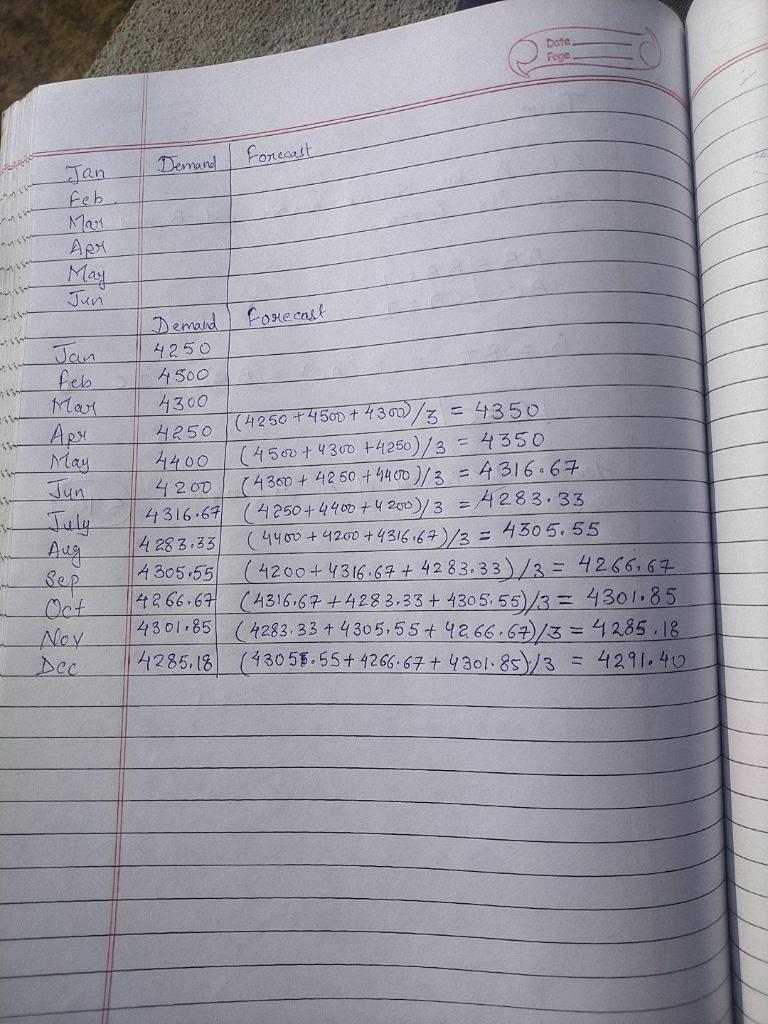 Date
Page
Demand Forecast
Jan
Feb
Mar
Apr
May
Jun
Demand Forecast
Jan 4250
Feb 4500
Mar 4300
Apr 4250 (4250+4500+4300)/3 = 4350
May 4400 (4500+4300+4250)/3 = 4350
Jun 4200 (4300+4250+4400)/3 = 4316.67
July 4316.67 (4250+4400+4200)/3 = 4283.33
Aug 4283.33 (4400+4200+4316.67)/3 = 4305.55
Sep 4305.55 (4200+4316.67+4283.33)/3 = 4266.67
Oct 4266.67 (4316.67+4283.33+4305.55)/3 = 4301.85
Nov 4301.85 (4283.33+4305.55+4266.67)/3 = 4285.18
Dec 4285.18 (4305.55+4266.67+4301.85)/3 = 4291.40